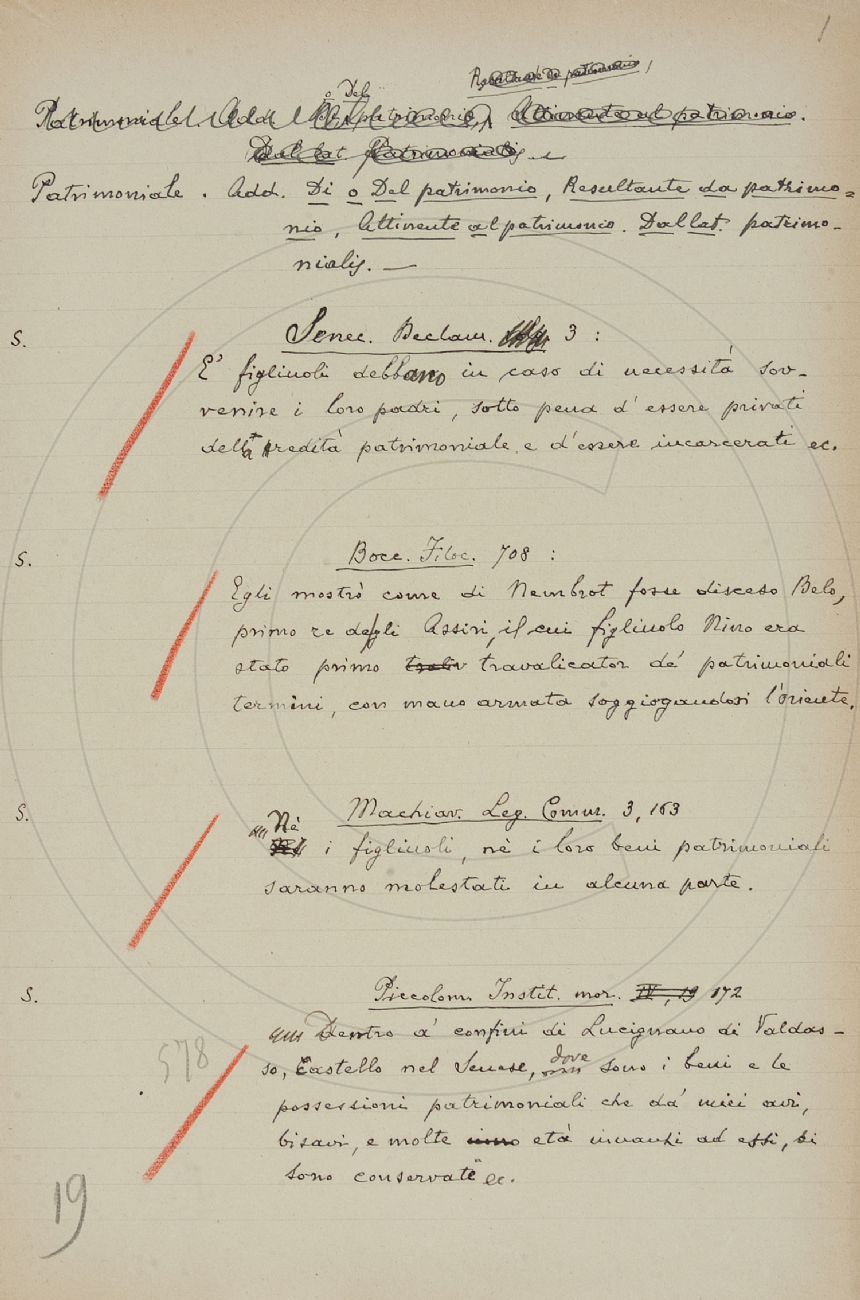 1
Resultante da patrimonio,
o Del
Patrimoniale. Add. Di patrimonio, Attinente al patrimonio.
Dal lat. Patrimonialis. —
Patrimoniale. Add. Di o Del patrimonio, Resultante da patrimo=
nio, Attinente al patrimonio. Dal lat. patrimo-
nialis. —
S. Senec. Declam. 3 :
E' figliuoli debbano in caso di necessità sov-
venire i loro padri, sotto pena d'essere privati
della redità patrimoniale, e d'essere incarcerati ec.
S. Bocc. Filoc. 708 :
Egli mostrò come di Nembrot fosse disceso Belo,
primo re degli Assiri, il cui figliuolo Nino era
stato primo travalicator de' patrimoniali
termini, con mano armata soggiogandosi l'oriente.
S. Machiav. Leg. Comm. 3, 163
Nè
i figliuoli, nè i loro beni patrimoniali
saranno molestati in alcuna parte.
S. Piccolom. Instit. mor. IV, 19 172
Dentro a' confini di Lucignano di Valdas-
so, Castello nel Senese, dove sono i beni e le
578
possessioni patrimoniali che da' miei avi,
bisavi, e molte età innanzi ad essi, si
sono conservate ec.
19